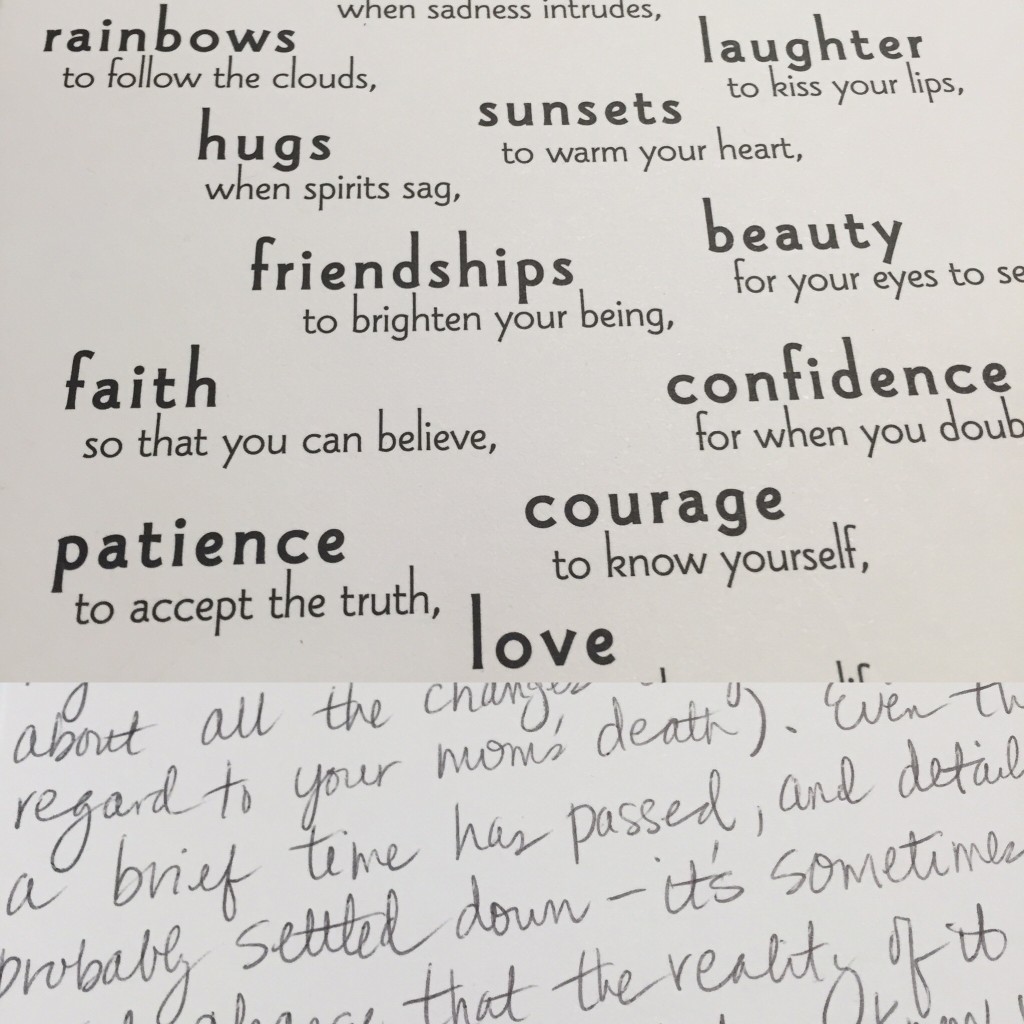 when sadness intrudes,
rainbows
to follow the clouds,
laughter
to kiss your lips,
sunsets
to warm your heart,
hugs
when spirits sag,
beauty
for your eyes to se
friendships
to brighten your being,
faith
so that you can believe,
confidence
for when you doub
courage
to know yourself,
patience
to accept the truth,
love
about all the changes
regard to your mom's death"). Even th
a brief time has passed, and detail
probably settled down – it's sometimes
that the reality of it